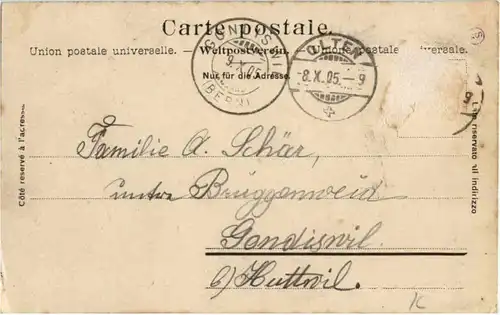 Carte postale.
Union postale universelle. — Weltpostverein. — Unione postale universale.
Nur für die Adresse.
OLTEN
8.X.05.–9
(BERN)
Côté réservé à l'adresse.
Lato riservato all indirizzo
Familie A. Schär,
untere Brüggenweid
Gondiswil.
b/ Huttwil.